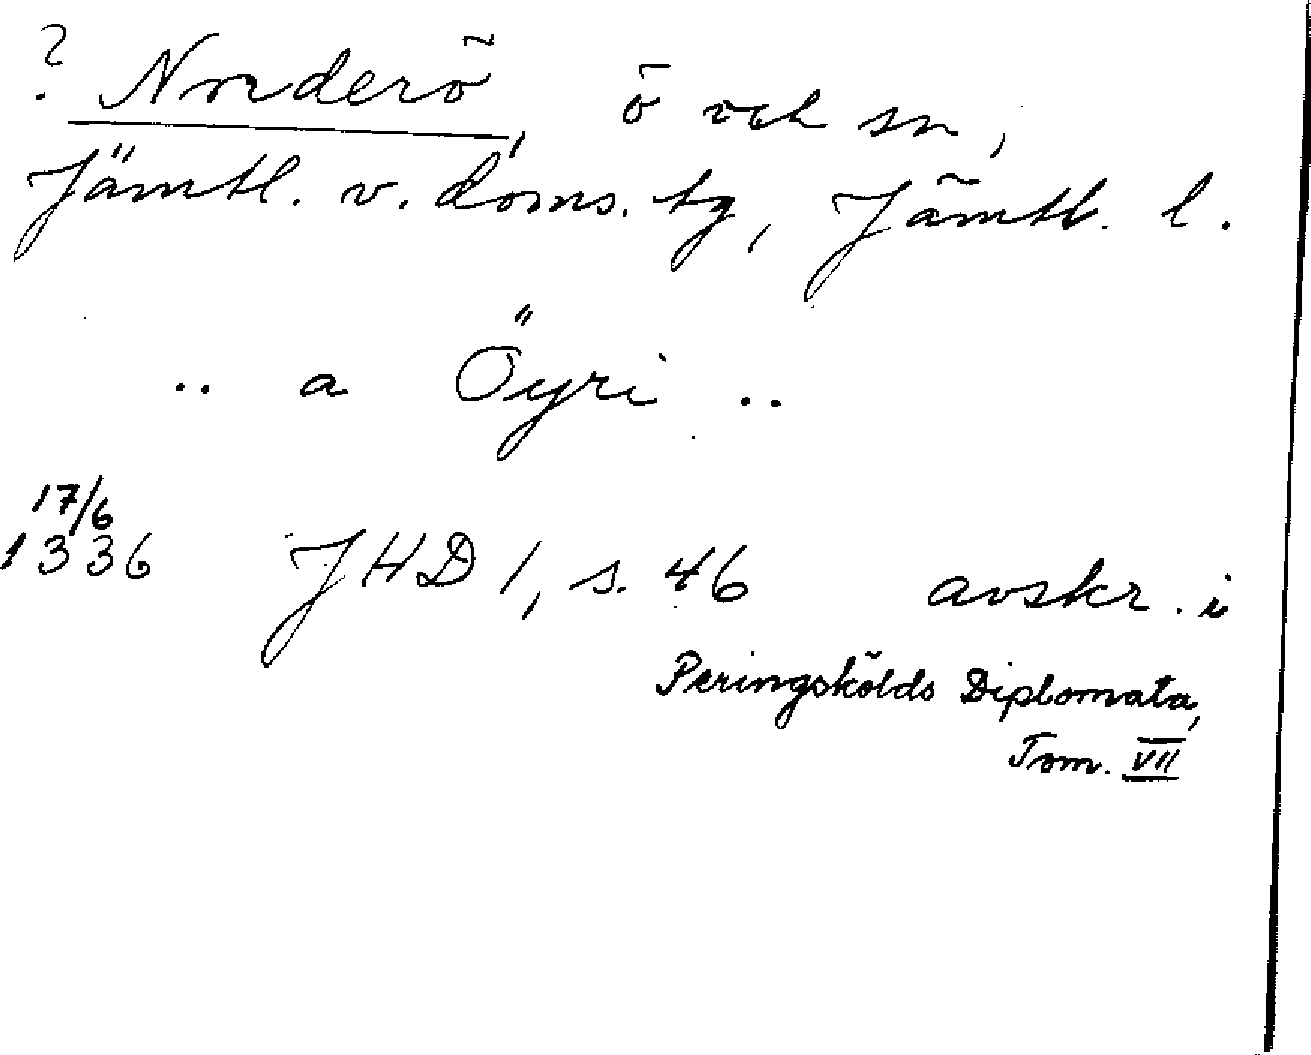 ? Norderö, ö och sn,
Jämtl. v. doms. tg, Jämtl. l.
.. a Öyri ..
17/6
1336 JHD 1, s. 46 avskr. i
Peringskölds Diplomata,
Tom. VII